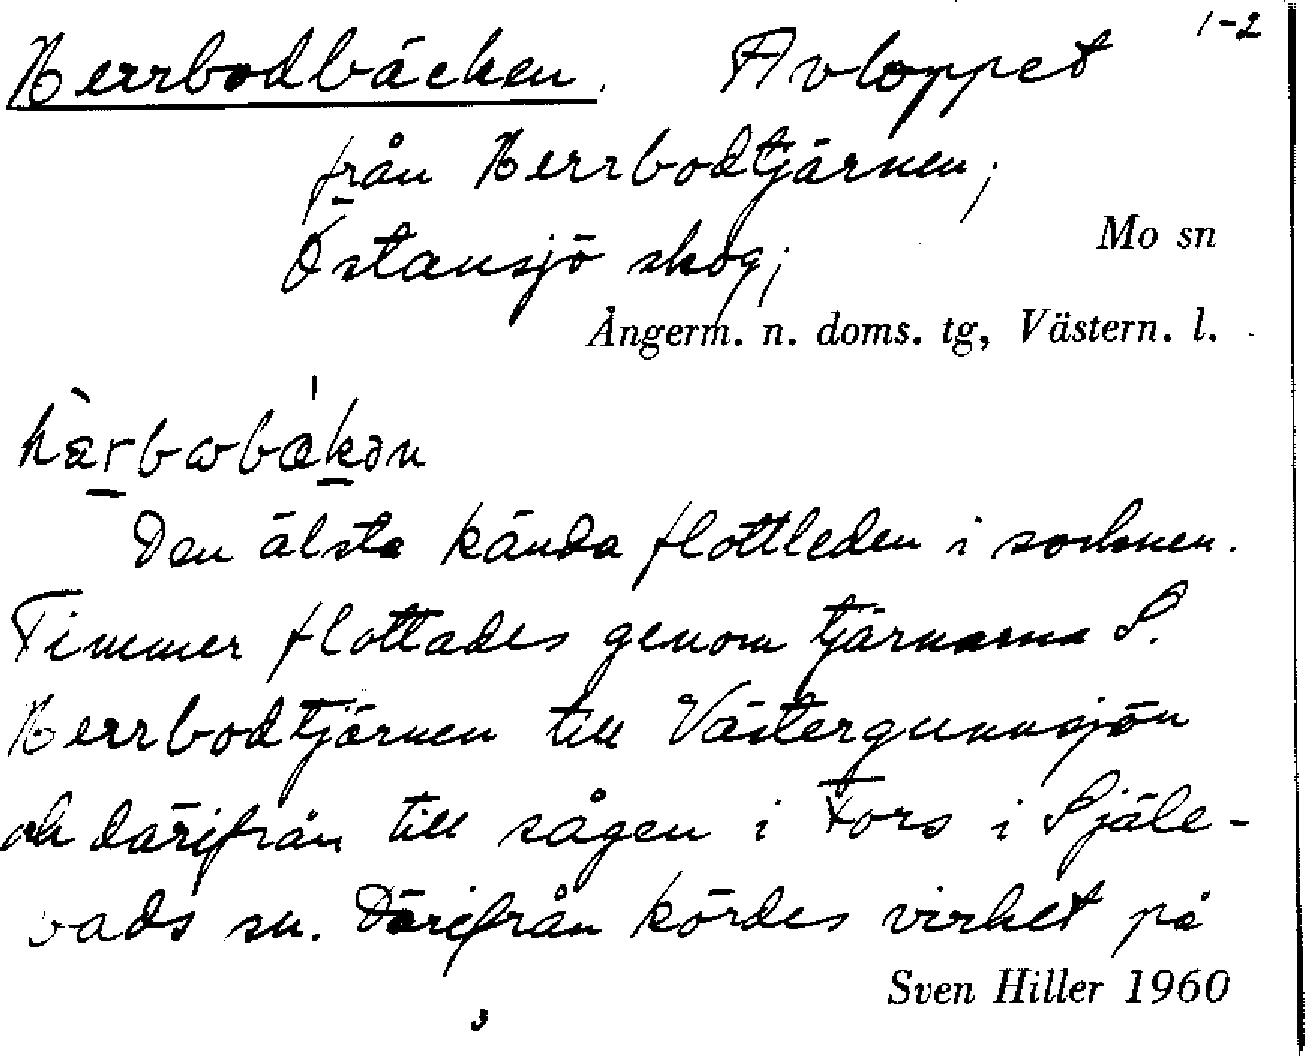 1-2
Herrbodbäcken. Avloppet
från Herrbodtjärnen;
Östansjö skog;
Mo sn
Ångerm. n. doms. tg, Västern. l.
hèrbωbækən
Den älsta kända flottleden i socknen.
Timmer flottades genom tjärnarna S.
Herrbodtjärnen till Västergunnsjön
och därifrån till sågen i Fors i Själe-
vads sn. Därifrån kördes virket på
Sven Hiller 1960